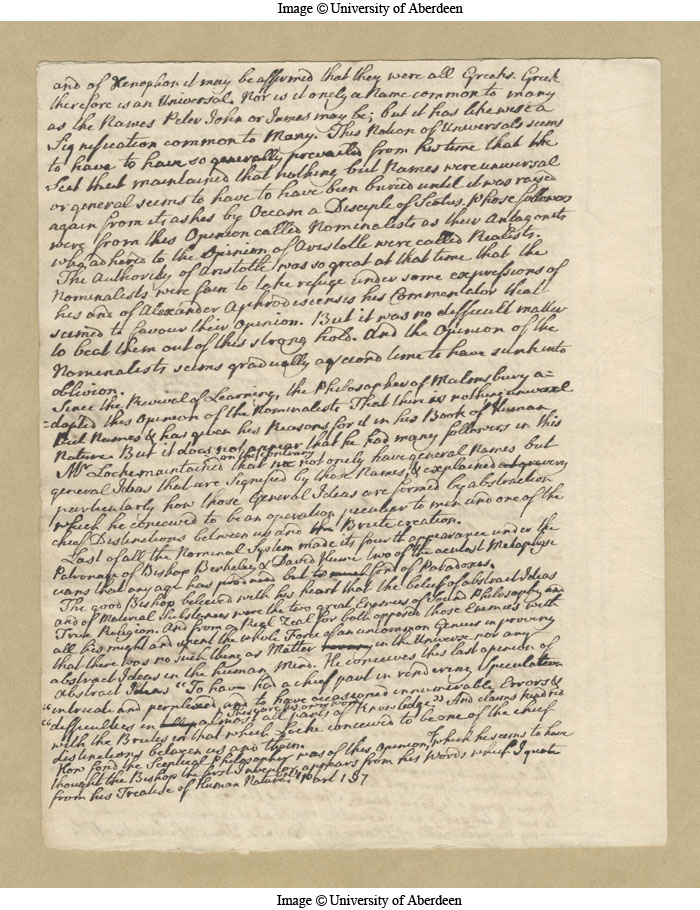 Image © University of Aberdeen
and of Xenophon it may be affirmed that they were all Greeks. Greek
therefore is an Universal. Nor is it onely a Name common to many
as the Names Peter John or James may be; but it has likewise a
Signification common to Many. This Notion of Universals seems
to have to have so generally prevailed from his time that the
Sect that maintained that nothing but Names were universal
or general seems to have to have been buried until it was raised
again from its ashes by Occam a Disciple of Scotus, whose followers
were from this Opinion called Nominalists as their Antagonists
who adhered to the Opinion of Aristotle were called Realists.
The Authority of Aristotle was so great at that time that the
Nominalists were fain to take refuge under some expressions of
his and of Alexander Aphrodisiensis his Commentator that
seemed to favour their Opinion. But it was no difficult matter
to beat them out of this strong hold. And the Opinion of the
Nominalists seems gradually a second time to have sunk into
oblivion.
Since the Revival of Learning, the Philosopher of Malmsbury a=
=dopted this Opinion of the Nominalists That there is nothing universal
but Names & has given his Reasons for it in his Book of Human
Nature But it does not appear that he had many followers in this
Mr Locke maintained on the contrary that not onely have general Names but
general Ideas that are signified by those Names, & explained very
particularly how those General Ideas are formed by abstraction
which he conceived to be an operation peculiar to men and one of the
chief Distinctions between us and the Brute creation.
Last of all the Nominal System made its fourth appearance under the
Patronage of Bishop Berkeley & David Hume two of the acutest Metaphysi
cians that any age has produced but fond of Paradoxes.
The good Bishop believed with his heart that the belief of abstract Ideas
and of Material Substances were the two great Enemies of sound Philosophy and
True Religion. And from a Real Zeal for both opposed those Enemies with
all his might and spent the whole Force of an uncommon Genius in proving
that there was no such thing as Matter in the Universe nor any
abstract Ideas in the human Mind. He conceives this last opinion of
abstract Ideas "To have had a chief part in rendering Speculation
"intricate and perplexed, and to have occasioned innumerable Errors &
"difficulties in almost all parts of Knowledge" These are his own words And claims kindred
with the Brutes in that which Locke conceived to be one of the chief
distinctions between us and them.
How fond the Sceptical Philosopher was of this Opinion, of which he seems to have
thought the Bishop the first Inventor, appears from his Words which I quote
from his Treatise of Human Nature Part 1 § 7
Image © University of Aberdeen